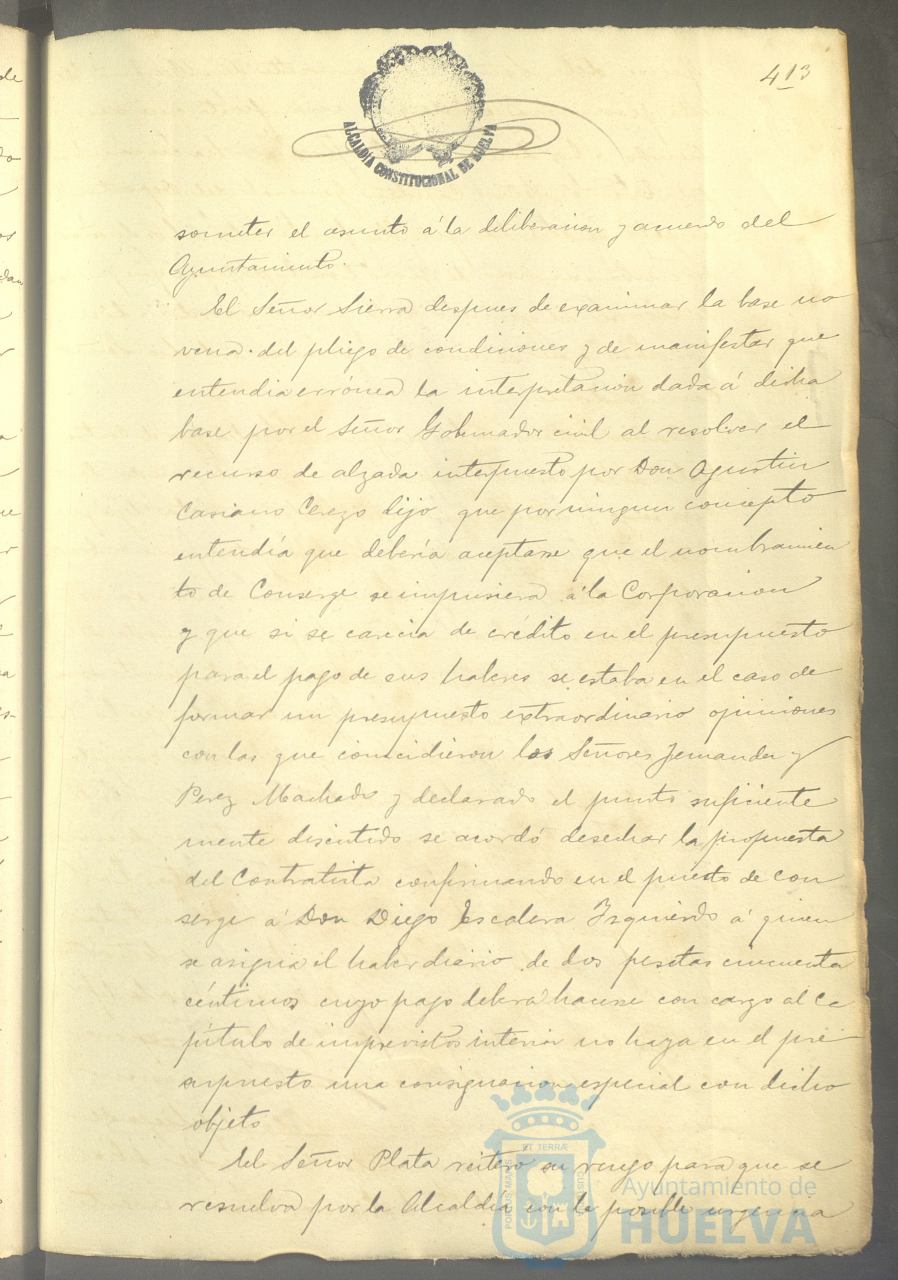 413
ALCALDÍA CONSTITUCIONAL DE HUELVA
someter el asunto á la deliberacion y acuerdo del
Ayuntamiento.
El Señor Sierra despues de examinar la base no
vena del pliego de condiciones y de manifestar que
entendia errónea la interpretacion dada á dicha
base por el Señor Gobernador civil al resolver el
recurso de alzada interpuesto por Don Agustin
Casiano Cerezo dijo que por ningun concepto
entendía que debería aceptarse que el nombramien
to de Conserge se impusiera á la Corporacion
y que si se carecia de crédito en el presupuesto
para el pago de sus haberes se estaba en el caso de
formar un presupuesto extraordinario opiniones
con las que coincidieron los Señores Fernandez y
Perez Machado y declarado el punto suficiente
mente discutido se acordó desechar la propuesta
del Contratista confirmando en el puesto de con
serge á Don Diego Escalera Izquierdo á quien
se asigna el haber diario de dos pesetas cincuenta
céntimos cuyo pago deberá hacerse con cargo al Ca
pítulo de imprevistos interin no haya en el pre
supuesto una consignacion especial con dicho
objeto
El Señor Plata reiteró su ruego para que se
resuelva por la Alcaldía con la posible urgencia
ET TERRÆ
PORTUS MARIS
CUS
Ayuntamiento de
HUELVA